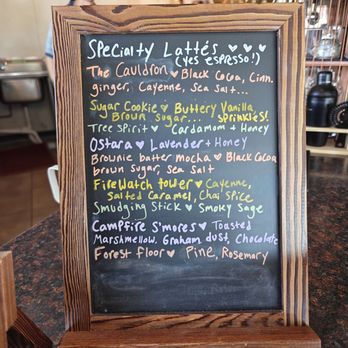 Specialty Lattés ♥ ♥ ♥
(yes espresso!)
The Cauldron ♥ Black Cocoa, Cinn.
ginger, Cayenne, Sea Salt...
Sugar Cookie ♥ Buttery Vanilla,
Brown Sugar... Sprinkles!
Tree Spirit ♥ Cardamom + Honey
Ostara ♥ Lavender + Honey
Brownie batter mocha ♥ Black Cocoa
brown Sugar, Sea Salt
Firewatch tower ♥ Cayenne,
Salted Caramel, Chai Spice
Smudging Stick ♥ Smoky Sage
Campfire S'mores ♥ Toasted
Marshmellow, Graham dust, Chocolate
Forest floor ♥ Pine, Rosemary